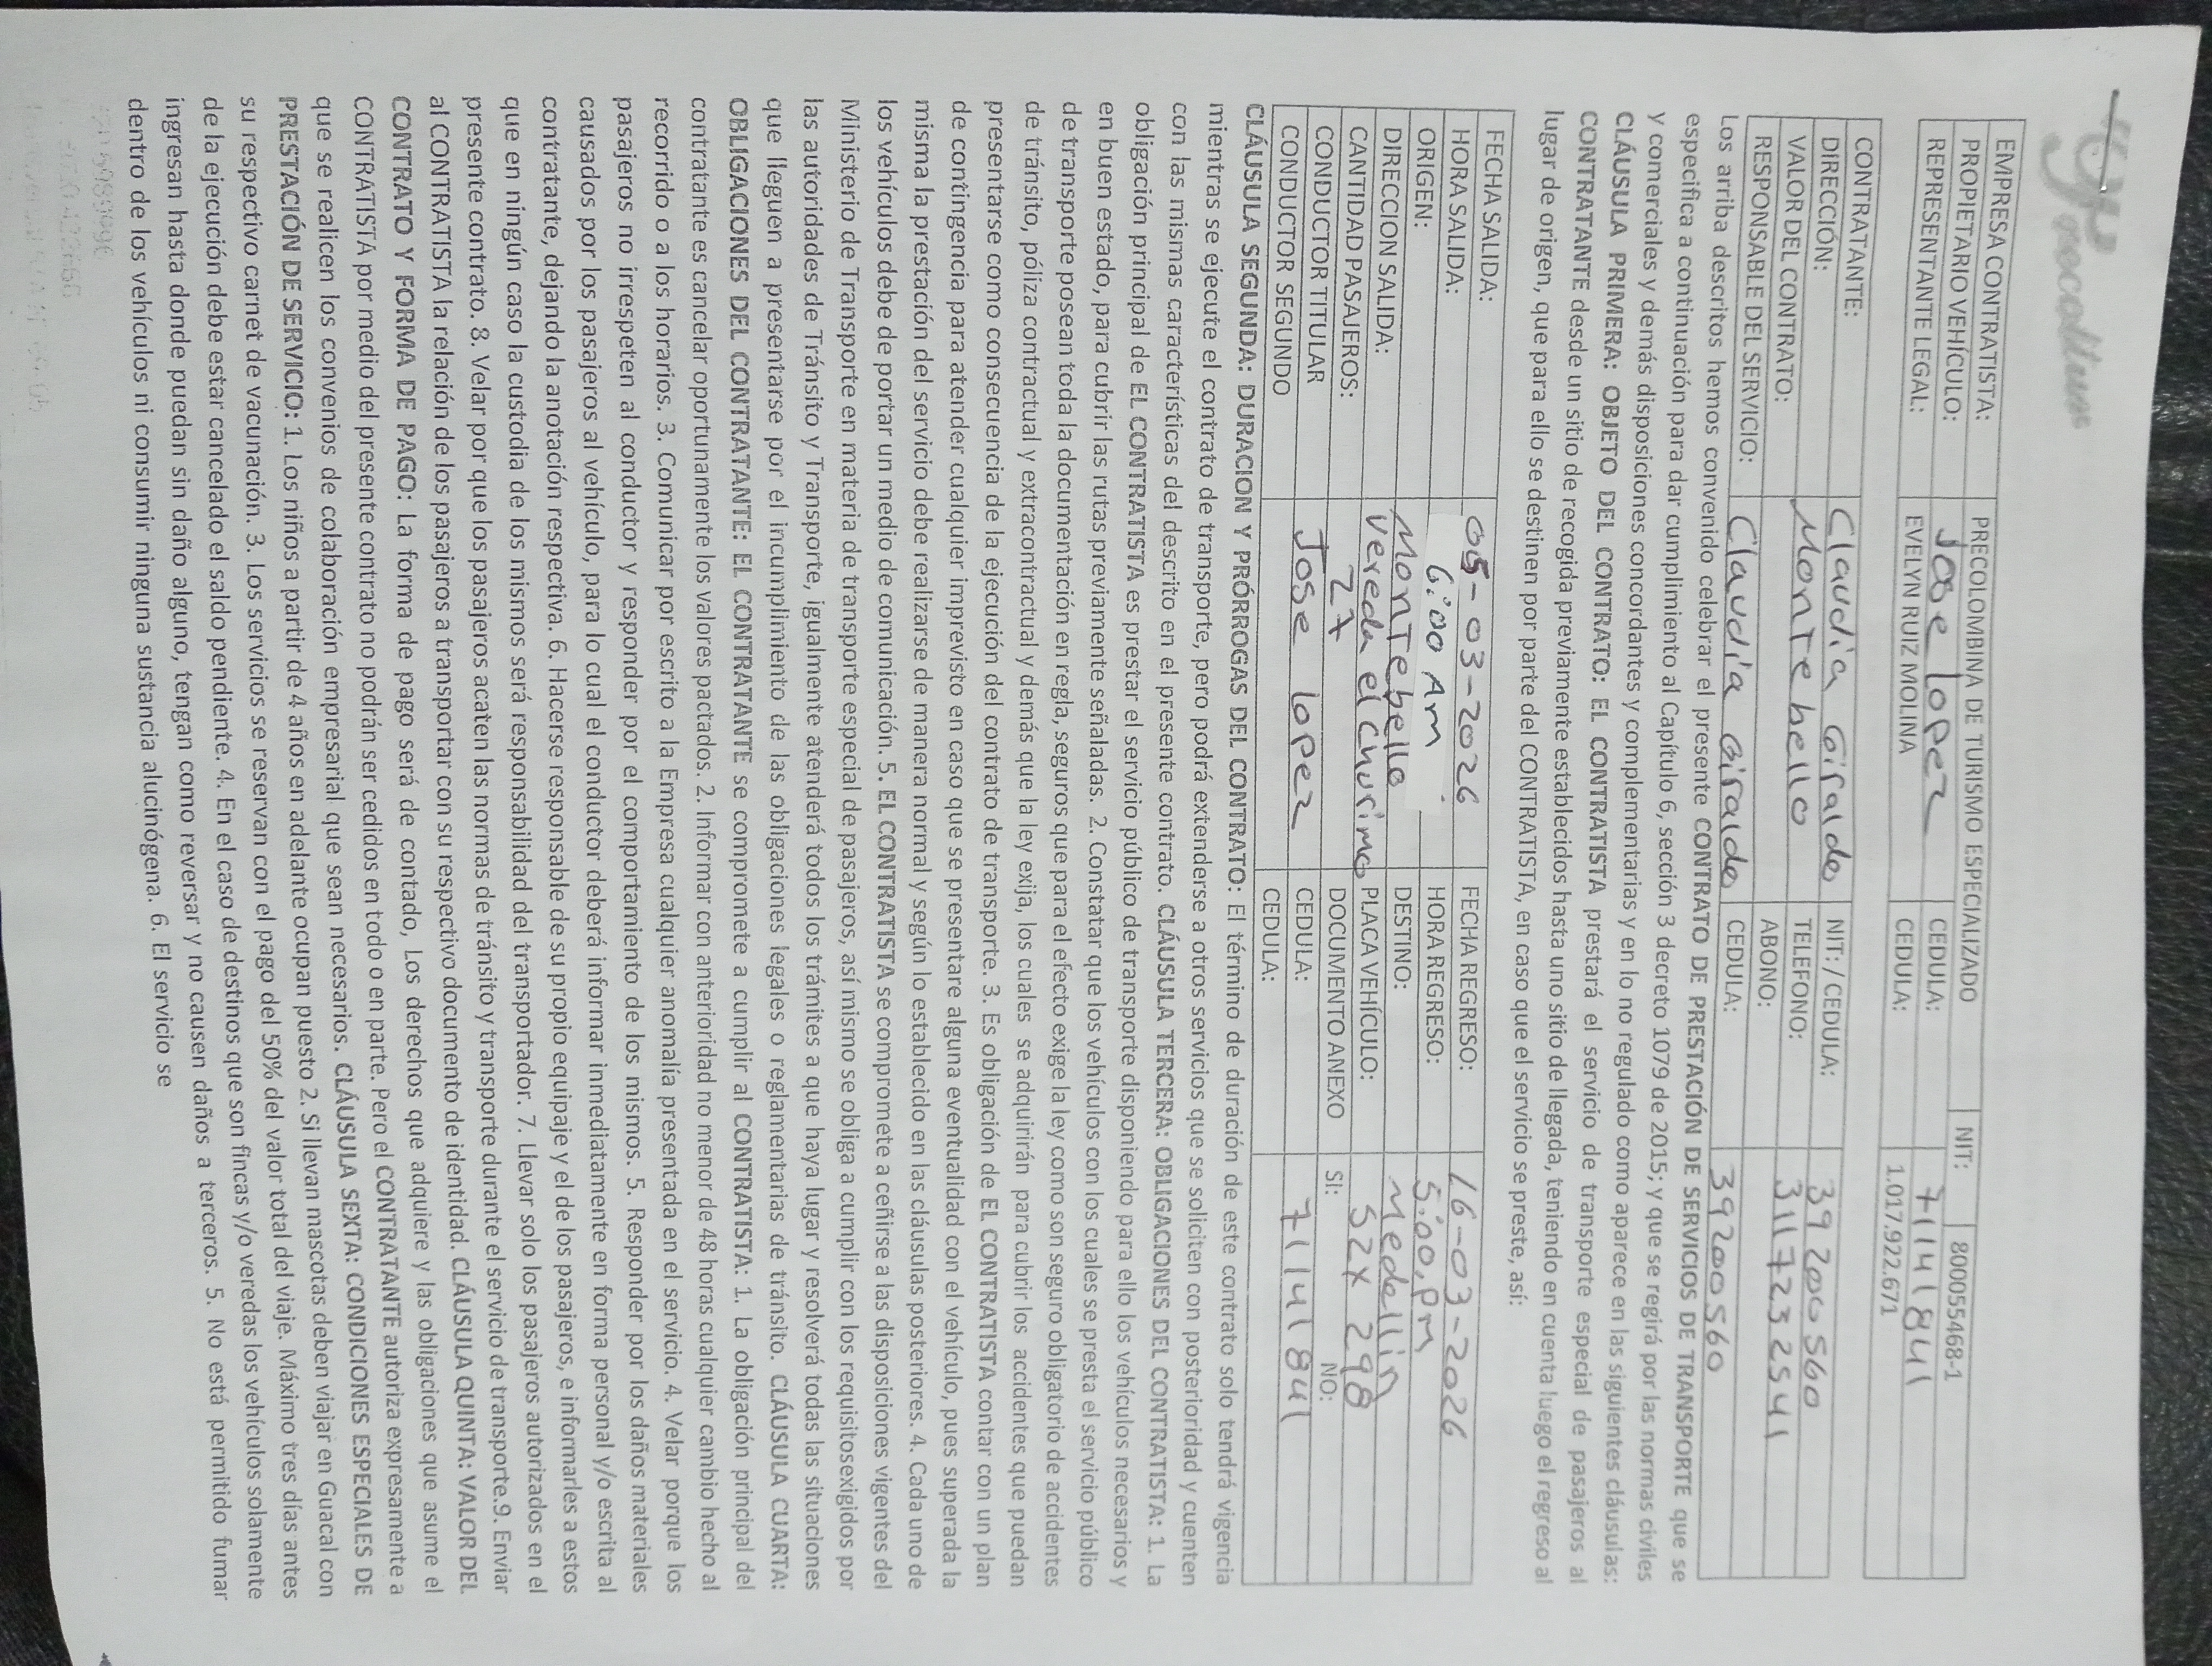 precoltur
EMPRESA CONTRATISTA: PRECOLOMBINA DE TURISMO ESPECIALIZADO NIT: 800055468-1
PROPIETARIO VEHÍCULO: Jose lopez CEDULA: 71141841
REPRESENTANTE LEGAL: EVELYN RUIZ MOLINA CEDULA: 1.017.922.671
CONTRATANTE: Claudia Giraldo NIT: / CEDULA: 39200560
DIRECCIÓN: Montebello TELEFONO: 3117232541
VALOR DEL CONTRATO: ABONO:
RESPONSABLE DEL SERVICIO: Claudia Giraldo CEDULA: 39200560
Los arriba descritos hemos convenido celebrar el presente CONTRATO DE PRESTACIÓN DE SERVICIOS DE TRANSPORTE que se
especifica a continuación para dar cumplimiento al Capítulo 6, sección 3 decreto 1079 de 2015; y que se regirá por las normas civiles
y comerciales y demás disposiciones concordantes y complementarias y en lo no regulado como aparece en las siguientes cláusulas:
CLÁUSULA PRIMERA: OBJETO DEL CONTRATO: EL CONTRATISTA prestará el servicio de transporte especial de pasajeros al
CONTRATANTE desde un sitio de recogida previamente establecidos hasta uno sitio de llegada, teniendo en cuenta luego el regreso al
lugar de origen, que para ello se destinen por parte del CONTRATISTA, en caso que el servicio se preste, así:
FECHA SALIDA: 05-03-2026 FECHA REGRESO: 16-03-2026
HORA SALIDA: 6:00 Am HORA REGRESO: 5:00,pm
ORIGEN: Montebello DESTINO: Medellin
DIRECCION SALIDA: Vereda el churimo PLACA VEHÍCULO: SZX 298
CANTIDAD PASAJEROS: 27 DOCUMENTO ANEXO SI: NO:
CONDUCTOR TITULAR Jose lopez CEDULA: 71141841
CONDUCTOR SEGUNDO CEDULA:
CLÁUSULA SEGUNDA: DURACION Y PRÓRROGAS DEL CONTRATO: El término de duración de este contrato solo tendrá vigencia
mientras se ejecute el contrato de transporte, pero podrá extenderse a otros servicios que se soliciten con posterioridad y cuenten
con las mismas características del descrito en el presente contrato. CLÁUSULA TERCERA: OBLIGACIONES DEL CONTRATISTA: 1. La
obligación principal de EL CONTRATISTA es prestar el servicio público de transporte disponiendo para ello los vehículos necesarios y
en buen estado, para cubrir las rutas previamente señaladas. 2. Constatar que los vehículos con los cuales se presta el servicio público
de transporte posean toda la documentación en regla, seguros que para el efecto exige la ley como son seguro obligatorio de accidentes
de tránsito, póliza contractual y extracontractual y demás que la ley exija, los cuales se adquirirán para cubrir los accidentes que puedan
presentarse como consecuencia de la ejecución del contrato de transporte. 3. Es obligación de EL CONTRATISTA contar con un plan
de contingencia para atender cualquier imprevisto en caso que se presentare alguna eventualidad con el vehículo, pues superada la
misma la prestación del servicio debe realizarse de manera normal y según lo establecido en las cláusulas posteriores. 4. Cada uno de
los vehículos debe de portar un medio de comunicación. 5. EL CONTRATISTA se compromete a ceñirse a las disposiciones vigentes del
Ministerio de Transporte en materia de transporte especial de pasajeros, así mismo se obliga a cumplir con los requisitosexigidos por
las autoridades de Tránsito y Transporte, igualmente atenderá todos los trámites a que haya lugar y resolverá todas las situaciones
que lleguen a presentarse por el incumplimiento de las obligaciones legales o reglamentarias de tránsito. CLÁUSULA CUARTA:
OBLIGACIONES DEL CONTRATANTE: EL CONTRATANTE se compromete a cumplir al CONTRATISTA: 1. La obligación principal del
contratante es cancelar oportunamente los valores pactados. 2. Informar con anterioridad no menor de 48 horas cualquier cambio hecho al
recorrido o a los horarios. 3. Comunicar por escrito a la Empresa cualquier anomalía presentada en el servicio. 4. Velar porque los
pasajeros no irrespeten al conductor y responder por el comportamiento de los mismos. 5. Responder por los daños materiales
causados por los pasajeros al vehículo, para lo cual el conductor deberá informar inmediatamente en forma personal y/o escrita al
contratante, dejando la anotación respectiva. 6. Hacerse responsable de su propio equipaje y el de los pasajeros, e informarles a estos
que en ningún caso la custodia de los mismos será responsabilidad del transportador. 7. Llevar solo los pasajeros autorizados en el
presente contrato. 8. Velar por que los pasajeros acaten las normas de tránsito y transporte durante el servicio de transporte.9. Enviar
al CONTRATISTA la relación de los pasajeros a transportar con su respectivo documento de identidad. CLÁUSULA QUINTA: VALOR DEL
CONTRATO Y FORMA DE PAGO: La forma de pago será de contado, Los derechos que adquiere y las obligaciones que asume el
CONTRATISTA por medio del presente contrato no podrán ser cedidos en todo o en parte. Pero el CONTRATANTE autoriza expresamente a
que se realicen los convenios de colaboración empresarial que sean necesarios. CLÁUSULA SEXTA: CONDICIONES ESPECIALES DE
PRESTACIÓN DE SERVICIO: 1. Los niños a partir de 4 años en adelante ocupan puesto 2. Si llevan mascotas deben viajar en Guacal con
su respectivo carnet de vacunación. 3. Los servicios se reservan con el pago del 50% del valor total del viaje. Máximo tres días antes
de la ejecución debe estar cancelado el saldo pendiente. 4. En el caso de destinos que son fincas y/o veredas los vehículos solamente
ingresan hasta donde puedan sin daño alguno, tengan como reversar y no causen daños a terceros. 5. No está permitido fumar
dentro de los vehículos ni consumir ninguna sustancia alucinógena. 6. El servicio se